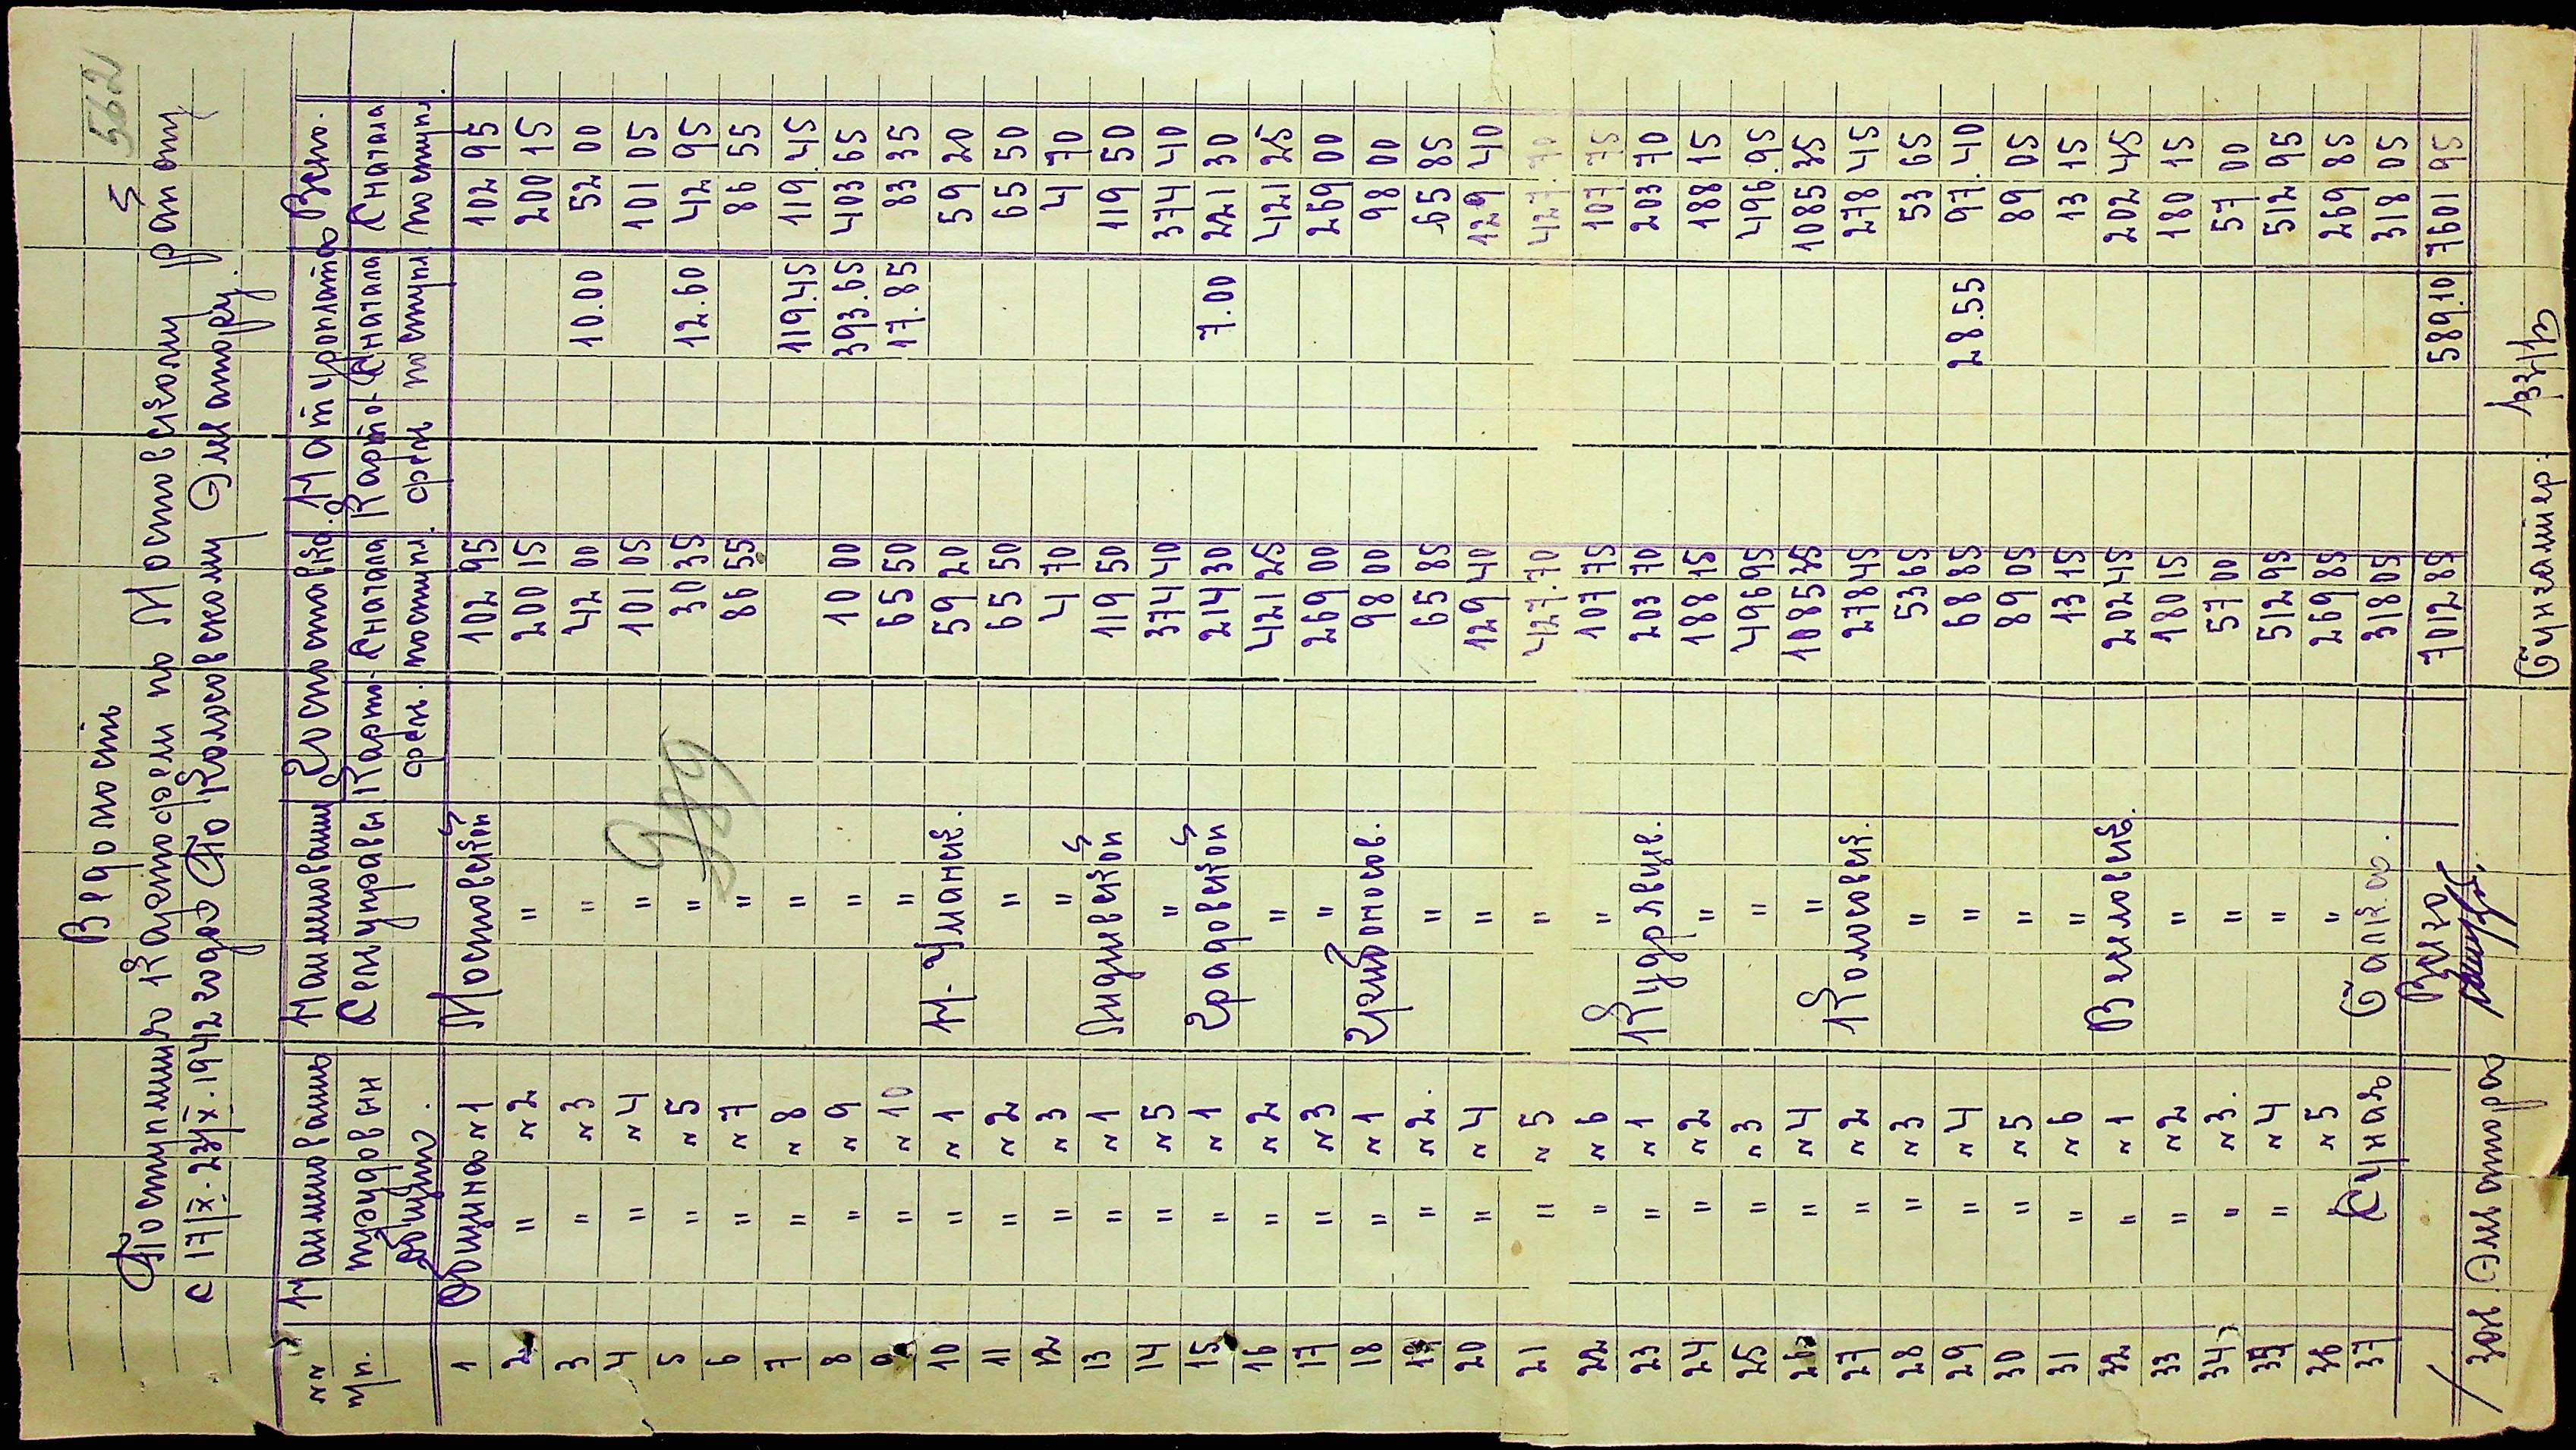 562
Ведомость
Поступило Картофеля по Мостовскому району
с 17/IX. 23/X. 1942 года По Колосовскому Элеватору.
№№ п/п. Наименовань трудовых общин. Наименовани Сельуправы Хоспоставка. Натуроплата Всего.
Картофел. Сначала поступл. Картофел Сначала поступл Сначала поступл.
1 Община №1 Мостовской 102 95 102 95
2 " №2 " 200 15 200 15
3 " №3 " 42 00 10.00 52 00
4 " №4 " 101 05 101 05
5 " №5 " 30 35 12.60 42 95
6 " №7 " 86 55 86 55
7 " №8 " 119.45 119.45
8 " №9 " 10 00 393.65 403 65
9 " №10 " 65 50 17.85 83 35
10 " №1 Н-Уманск. 59 20 59 20
11 " №2 " 65 50 65 50
12 " №3 " 4 70 4 70
13 " №1 119 50 119 50
14 " №5 " 374 40 374 40
15 " №1 214 30 7.00 221 30
16 " №2 " 421 25 421 25
17 " №3 " 269 00 269 00
18 " №1 98 00 98 00
19 " №2. " 65 85 65 85
20 " №4 " 129 40 129 40
21 " №5 " 427.70 427.70
22 " №6 " 107 75 107 75
23 " №1 Кудрявцев. 203 70 203 70
24 " №2 " 188 15 188 15
25 " №3 " 496 95 496.95
26 " №4 " 1085 25 1085 25
27 " №2 Колосовск. 278 45 278 45
28 " №3 " 53 65 53 65
29 " №4 " 68 85 28.55 97.40
30 " №5 " 89 05 89 05
31 " №6 " 13 15 13 15
32 " №1 202 45 202 45
33 " №2 " 180 15 180 15
34 " №3. " 57 00 57 00
35 " №4 " 512 95 512 95
36 " №5 " 269 85 269 85
37 318 05 318 05
Всего 7012 85 589.10 7601 95
Зав. Элеватора Бухгалтер.